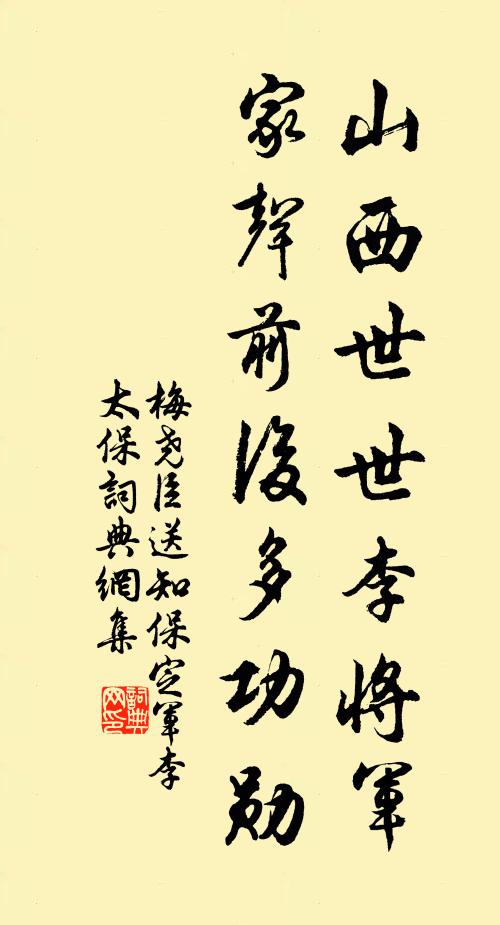 山西世世李將軍
家聲前後多功勛
梅堯臣送知保定軍李
太保詞典網集
詞典
网印